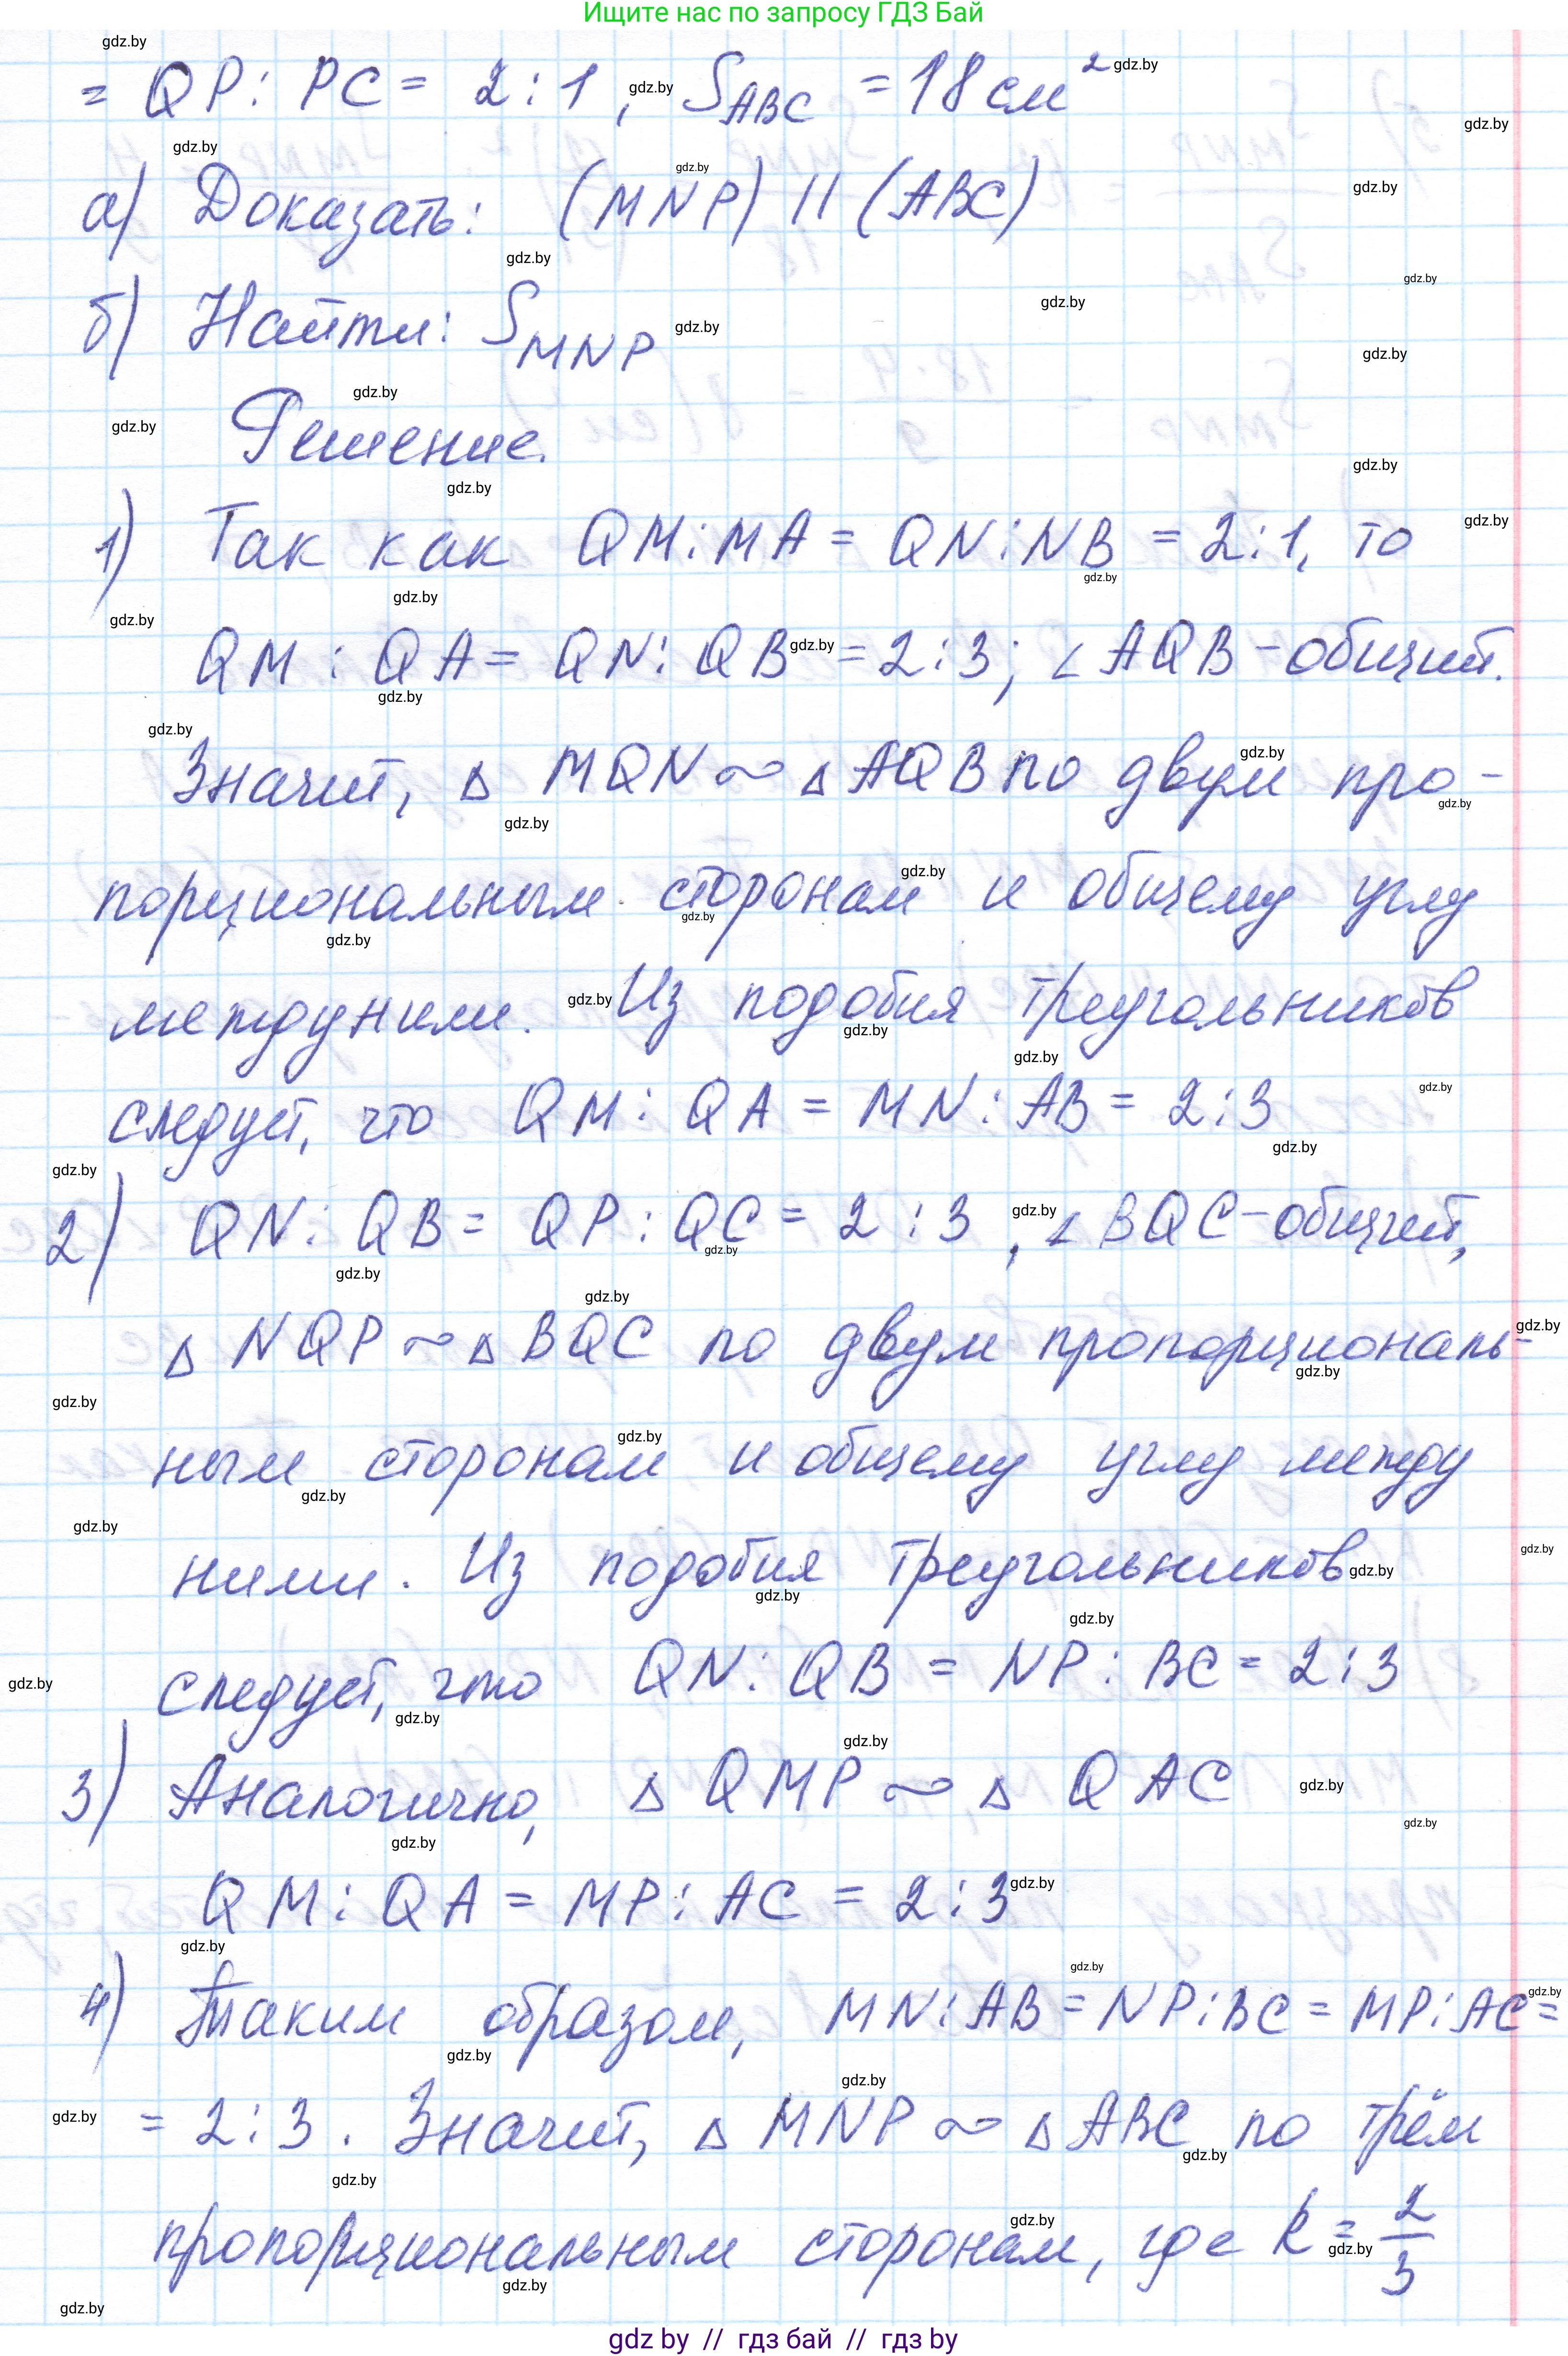 Ищите нас по запросу ГДЗ Бай
= QP : PC = 2 : 1, S_ABC = 18 см²
а) Доказать: (MNP) || (ABC)
б) Найти: S_MNP
Решение.
1) Так как QM : MA = QN : NB = 2 : 1, то
QM : QA = QN : QB = 2 : 3; ∠AQB - общий.
Значит, △ MQN ~ △ AQB по двум про-
порциональным сторонам и общему углу
между ними. Из подобия треугольников
следует, что QM : QA = MN : AB = 2 : 3
2) QN : QB = QP : QC = 2 : 3, ∠BQC - общий,
△ NQP ~ △ BQC по двум пропорциональ-
ным сторонам и общему углу между
ними. Из подобия треугольников
следует, что QN : QB = NP : BC = 2 : 3
3) Аналогично, △ QMP ~ △ QAC
QM : QA = MP : AC = 2 : 3
4) Таким образом, MN : AB = NP : BC = MP : AC =
= 2 : 3. Значит, △ MNP ~ △ ABC по трём
пропорциональным сторонам, где k = 2/3
gdz by // гдз бай // гдз by